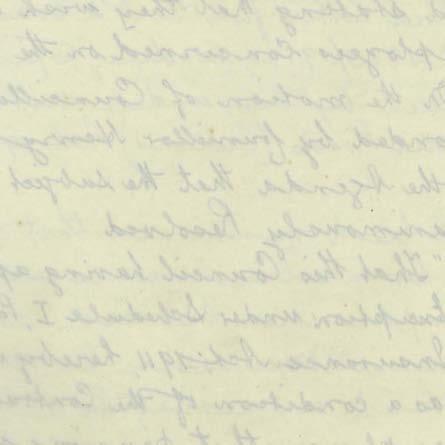 stating that they
ployees concerned on the
the motion of Councillo
onded by Councillor Henry
the Agenda that the subject
animously Resolved
"That this Council having ap
under Schedule I,
Insurance Act, 1911, hereby
as a condition of the Contra